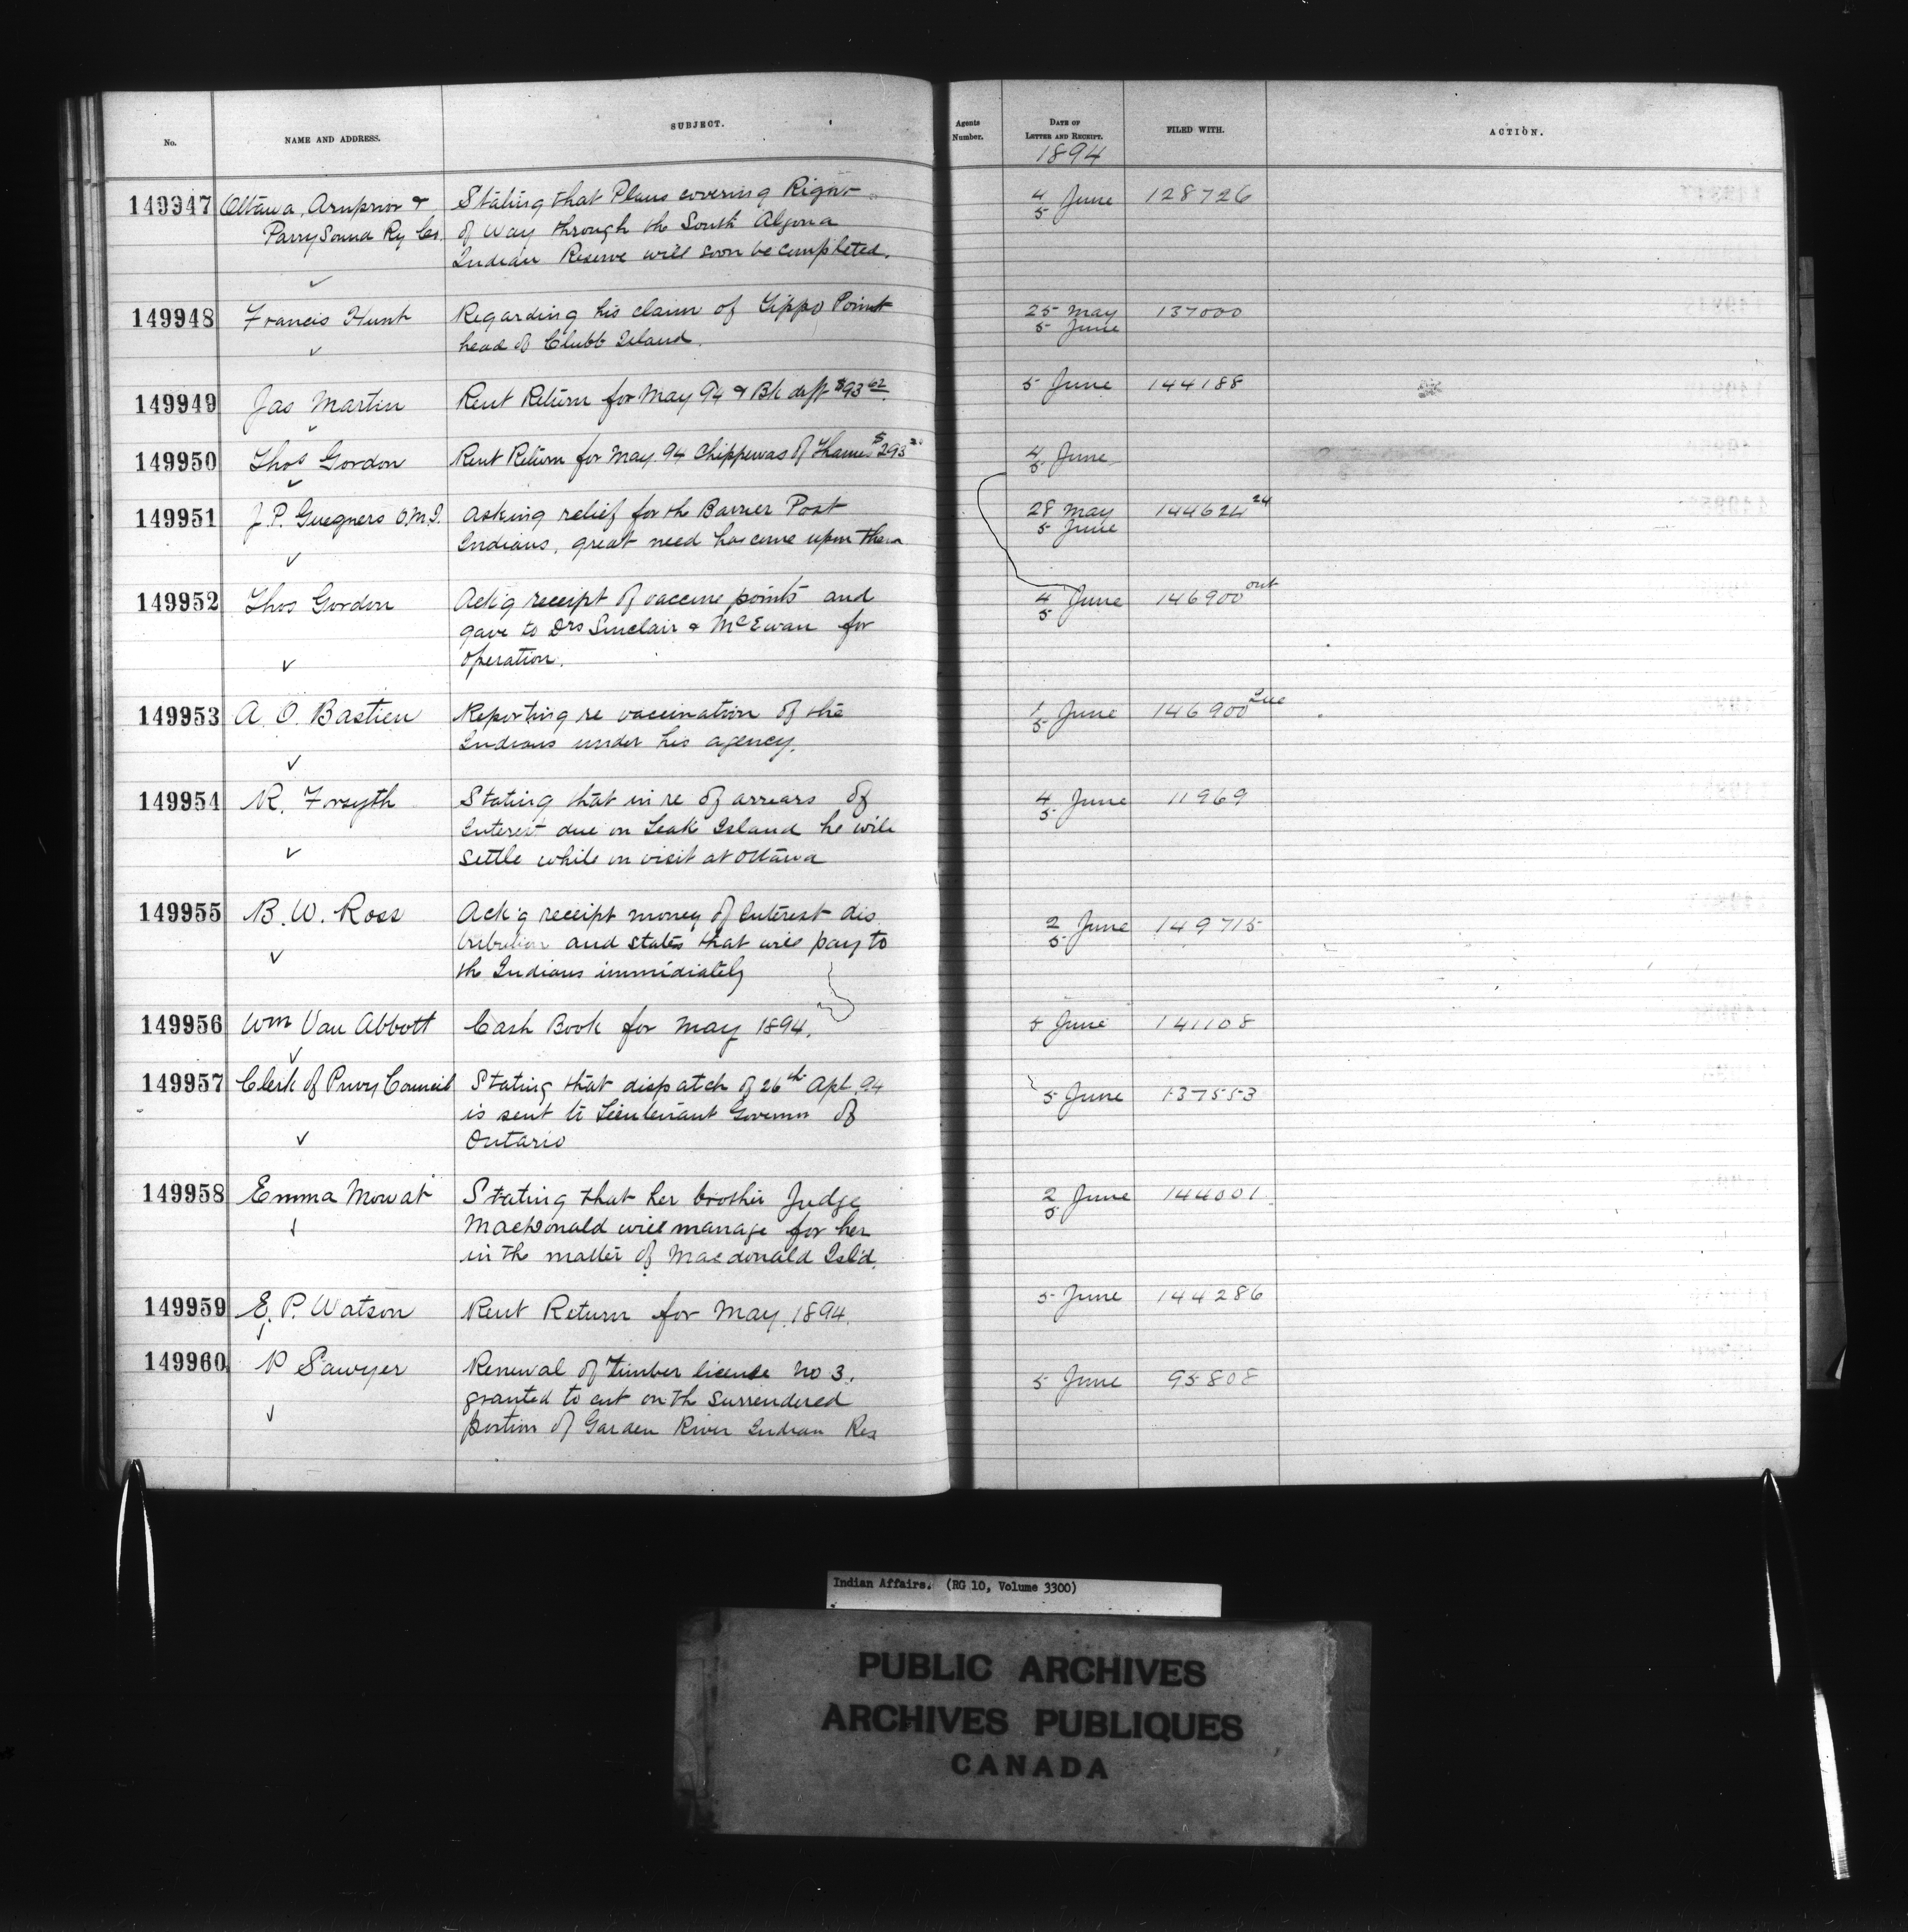 No.
NAME AND ADDRESS.
SUBJECT.
Agents Number.
DATE OF LETTER AND RECEIPT.
1894
FILED WITH.
ACTION.
149947 Ottawa, Arnprior & Stating that Plans covering Right 4 June 128726
Parry Sound Ry Co. of Way through the South Algona 5
Indian Reserve will soon be completed.
149948 Francis Hunt Regarding his claim of Tippo Point 25 May 137000
head of Clubb Island. 5 June
149949 Jas Martin Rent Return for May 94 & Bk dft $93 62 5 June 144188
149950 Thos Gordon Rent Return for May 94 Chippewas of Thames $293 4 June
5
149951 J.P. Guegners O.M.I. Asking relief for the Barrier Post 28 May 144624 24
Indians, great need has come upon them 5 June
149952 Thos Gordon Ack'g receipt of vaccine points and 4 June 146900 ont
gave to Drs Sinclair & McEwan for 5
operation.
149953 A. O. Bastien Reporting re vaccination of the 1 June 146900 Que
Indians under his agency. 5
149954 R. Forsyth Stating that in re of arrears of 4 June 11969
Interest due on Leak Island he will 5
settle while on visit at Ottawa
149955 B. W. Ross Ack'g receipt money of Interest dis 2 June 149715
tribution and states that will pay to 5
the Indians immidiately
149956 Wm Van Abbott Cash Book for May 1894. 5 June 141108
149957 Clerk of Privy Council Stating that dispatch of 26th Apl. 94 5 June 137553
is sent to Lieutenant Governor of
Ontario
149958 Emma Mowat Stating that her brother Judge 2 June 144001
MacDonald will manage for her 5
in the matter of Macdonald Isl'd.
149959 E. P. Watson Rent Return for May. 1894. 5 June 144286
149960 P Sawyer Renewal of Timber license No 3. 5 June 95808
granted to cut on the surrendered
portion of Garden River Indian Res
Indian Affairs. (RG 10, Volume 3300)
PUBLIC ARCHIVES
ARCHIVES PUBLIQUES
CANADA